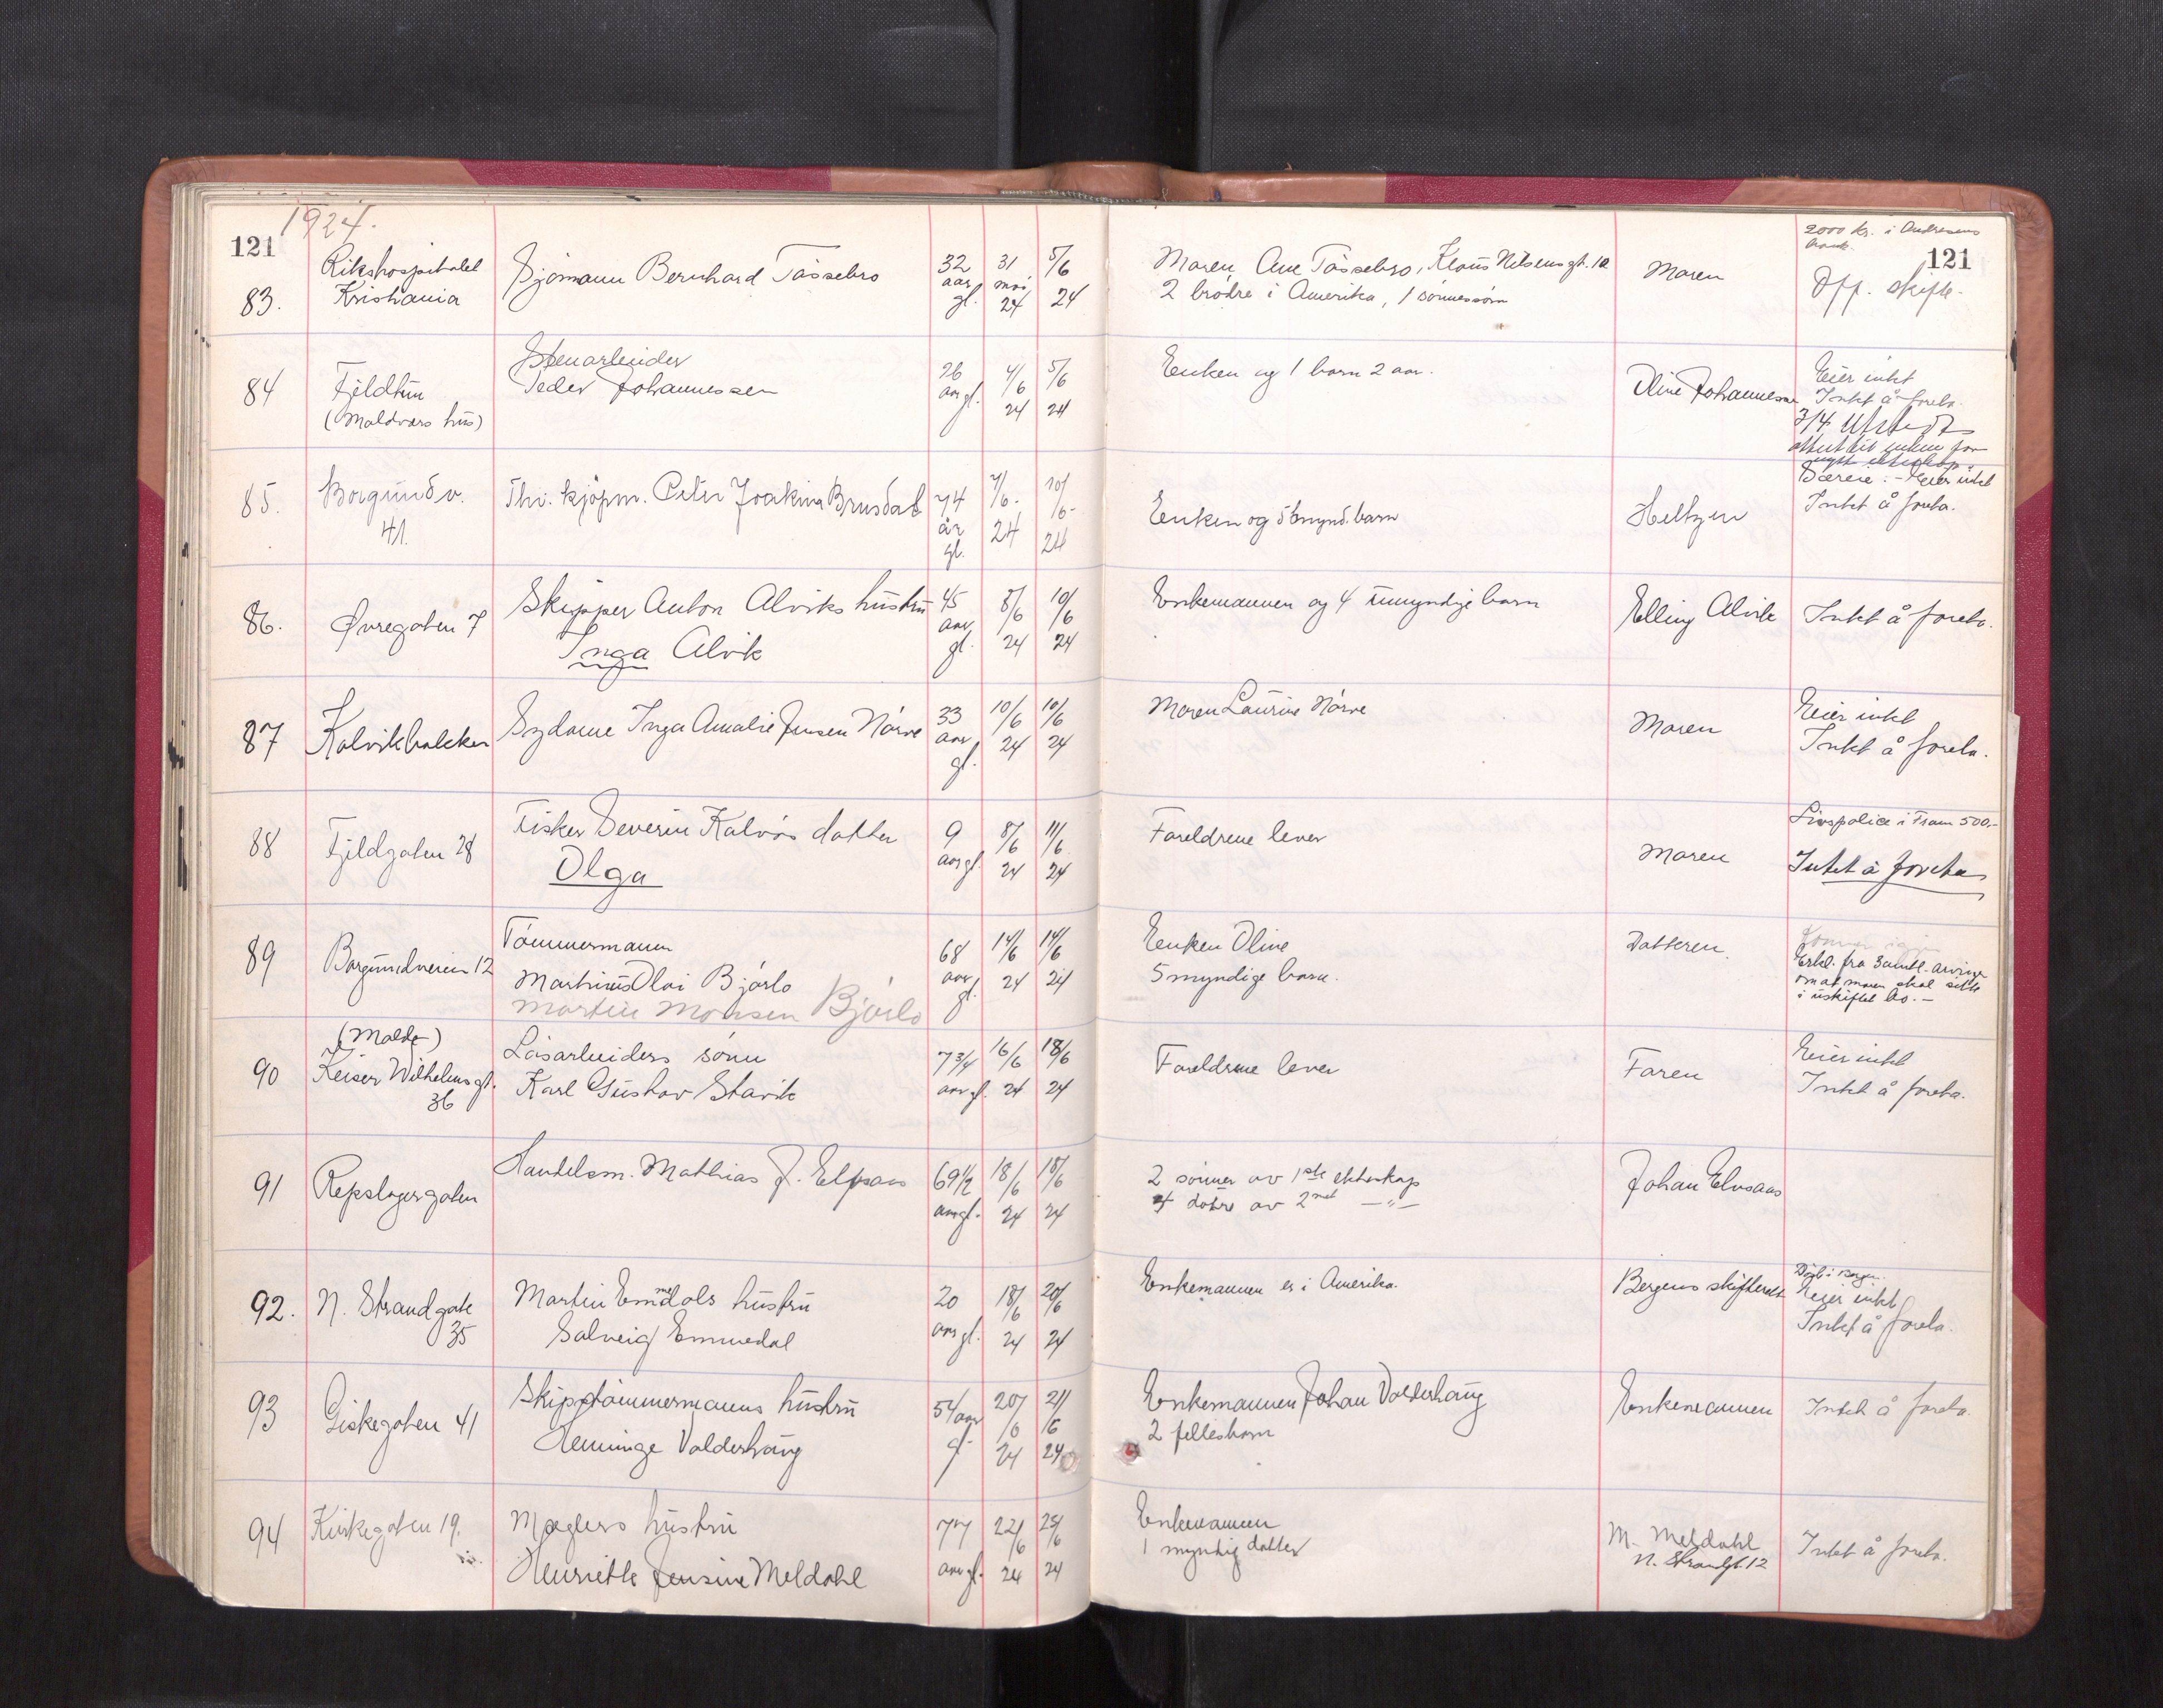 1924.
121
Rikshospitalet
83.
Kristiania
Sjömann Bernhard Tässebro
32
aar
gl.
31
mai
24
5/6
24
Moren Ane Tässebro, Klaus Nilsens gt. 10
2 brödre i Amerika, 1 sönnesön
Moren
2000 kr. i Andresens
bank.
121
Off. skifte.
84
Fjeldtun
(Maldvars hus)
Stenarbeider
Peder Johannessen
26
aar gl.
4/6
24
5/6
24
Enken og 1 barn 2 aar.
Oline Johannessen
Eier intet
Intet å foreta.
3/4 Utstedt
attest til enken for
nytt ekteskap.
85.
Borgundv.
41.
Fhv. kjöpm. Peter Joakim Brusdal
74
år
gl.
7/6.
24
10/6.
24
Enken og 5 mynd. barn
Heltzen
Eier intet
Intet å foreta.
86.
Øvregaten 7
Skipper Anton Alviks hustru
Inga Alvik
45
aar
gl.
8/6
24
10/6
24
Enkemannen og 4 umyndige barn
Elling Alvik
Intet å foreta.
87
Kalvikbakken
Sydame Inga Amalie Jensen Nörve
33
aar
gl.
10/6
24
10/6
24
Moren Laurine Nörve
Moren
Eier intet
Intet å foreta.
88
Fjeldgaten 28
Fisker Severin Kalvös datter
Olga
9
aar gl.
8/6
24
11/6
24
Foreldrene lever
Moren
Livspolice i Fram 500.-
Intet å foreta
89
Borgundveien 12
Tömmermann
Martinus Olai Bjørlo
Martin Monsen Bjørlo
68
aar
gl.
14/6
24
14/6
24
Enken Oline
5 myndige barn.
Datteren.
Kommer igjen
Erkl. fra samtl. arvinger
om at moren skal sitte
i uskiftet bo.-
90
(Molde)
Keiser Wilhelms gt.
36
Løsarbeiders sönn
Karl Gustav Stavik
7 3/4
aar gl.
16/6
24
18/6
24
Foreldrene lever
Faren
Eier intet
Intet å foreta.
91
Repslagergaten
Handelsm. Mathias J. Elfsaas
69 1/2
aar gl.
18/6
24
18/6
24
2 sönner av 1ste ekteskap
4 dötre av 2net —"—
Johan Elvsaas
92.
N. Strandgate
35
Martin Emmedals hustru
Solveig Emmedal
20
aar gl.
18/6
24
20/6
24
Enkemannen er i Amerika.
Bergens skifterett
Död i Bergen.
Eier intet
Intet å foreta.
93
Giskegaten 41
Skipstömmermanns hustru
Henninge Valderhaug
54 aar
gl.
20/6
24
21/6
24
Enkemannen Johan Valderhaug
2 fellesbarn
Enkemannen
Intet å foreta.
94
Kirkegaten 19.
Mæglers hustru
Henriette Jensine Meldahl
77
aar gl.
22/6
24
25/6
24
Enkemannen
1 myndig datter
M. Meldahl
N. Strandgt. 12
Intet å foreta.